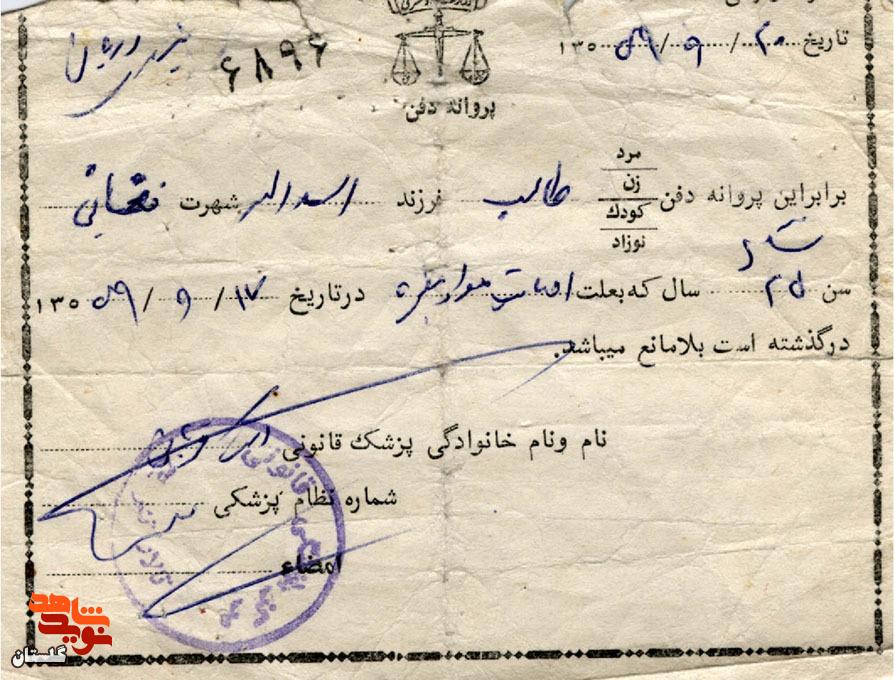 تاریخ ۲۰/۹/۱۳۵۹
۶۸۹۶
پروانه دفن
مرد
زن
کودک
نوزاد
برابر این پروانه دفن طالب فرزند اسداله شهرت
سن ۲۵ سال که بعلت اصابت مواد در تاریخ ۱۷/۹/۱۳۵۹
درگذشته است بلامانع میباشد.
نام ونام خانوادگی پزشک قانونی
شماره نظام پزشکی
امضاء
قانونی
نوید شاهد
گلستان